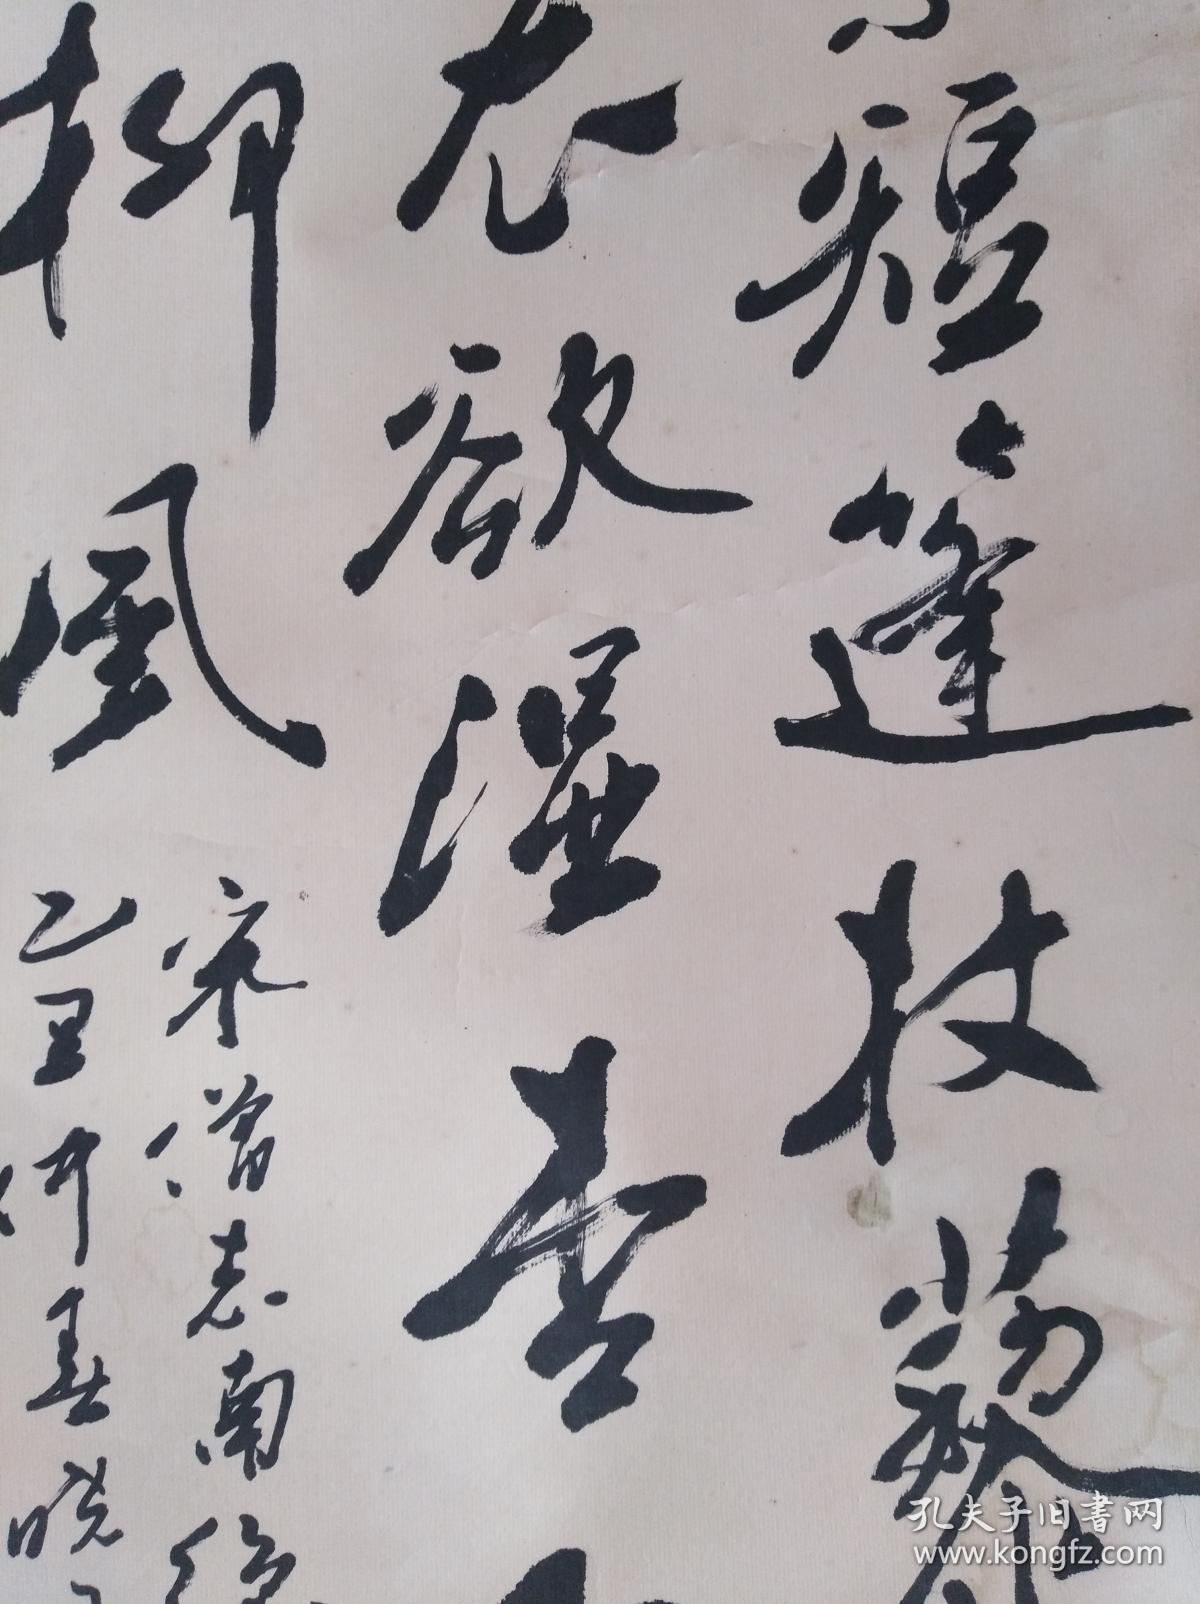 短篷杖藜
衣欲湿杏
柳风
宋僧志南绝
乙丑仲春晓
孔夫子旧书网
www.kongfz.com